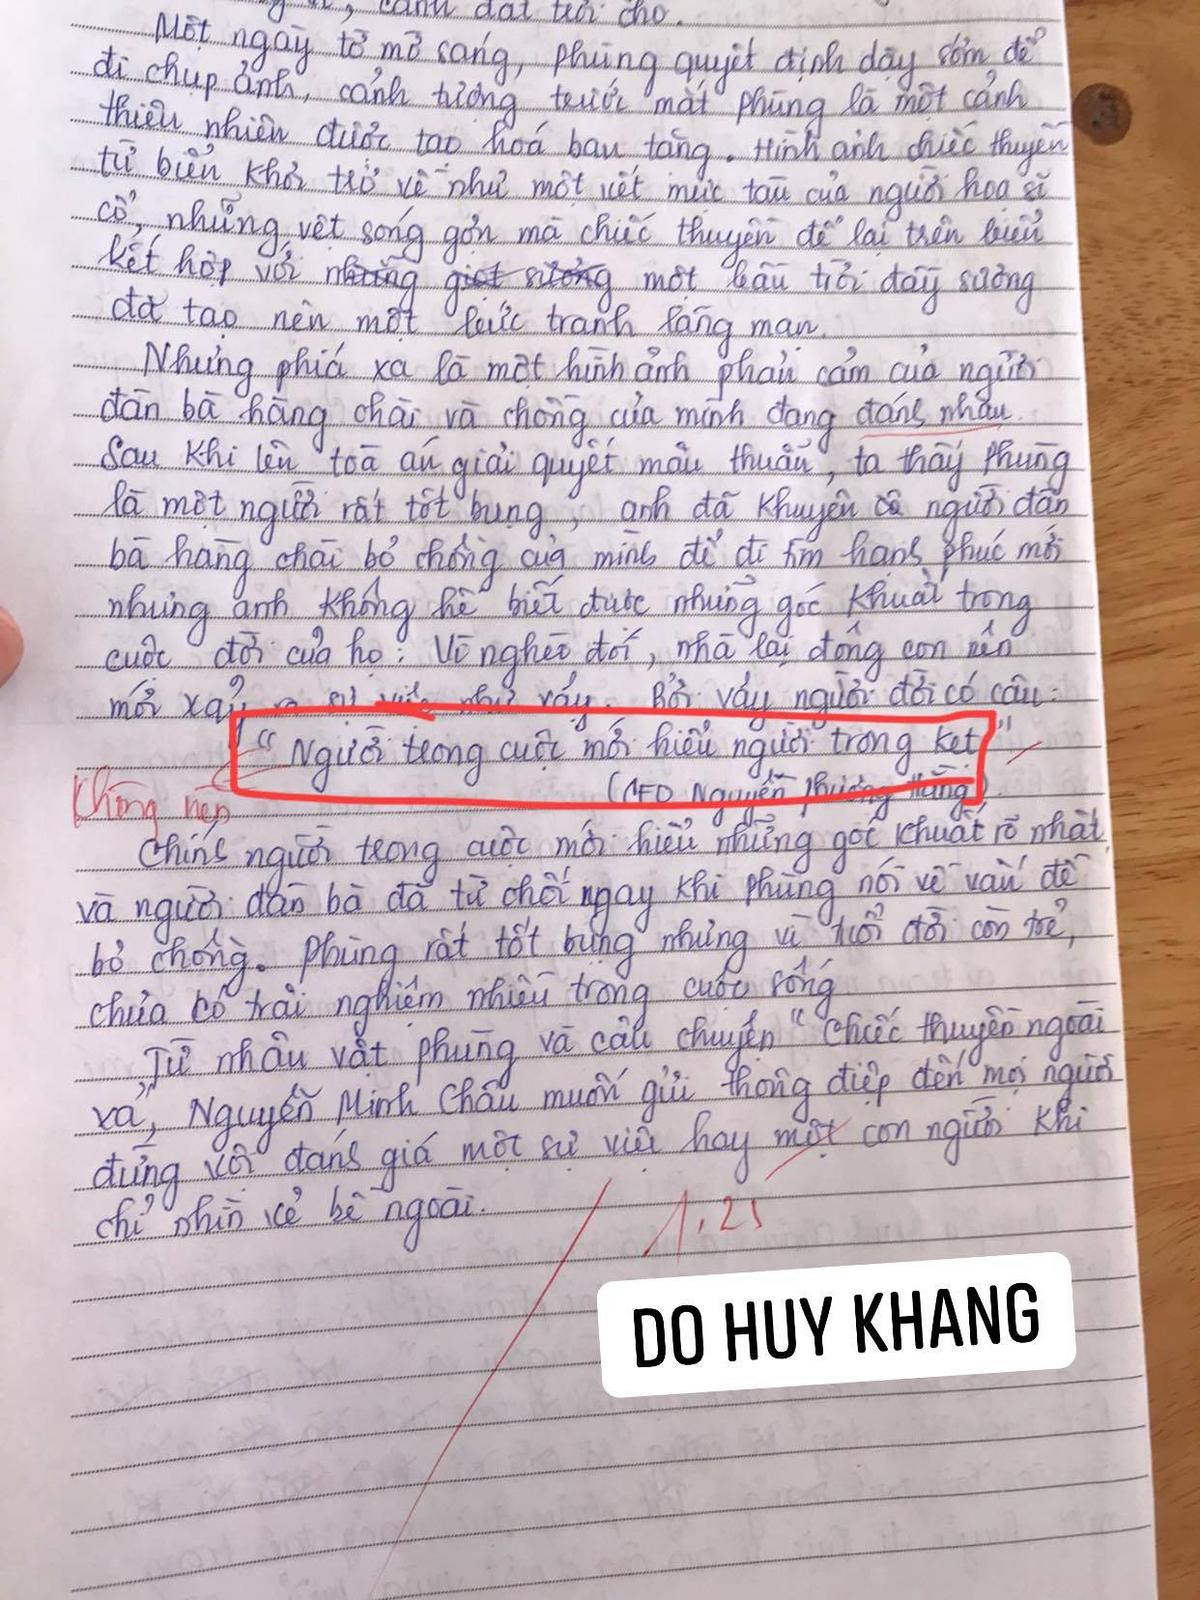 cảnh đất trời cho.
Một ngày tờ mờ sáng, Phùng quyết định dậy sớm để
đi chụp ảnh, cảnh tượng trước mắt Phùng là một cảnh
thiên nhiên được tạo hoá ban tặng. Hình ảnh chiếc thuyền
từ biển khơi trở về như một vết mực tàu của người hoạ sĩ
cổ, những vệt sóng gợn mà chiếc thuyền để lại trên biển
kết hợp với những giọt sương một bầu trời đầy sương
đã tạo nên một bức tranh lãng mạn.
Nhưng phiá xa là một hình ảnh phản cảm của người
đàn bà hàng chài và chồng của mình đang đánh nhau.
Sau khi lên toà án giải quyết mâu thuẫn, ta thấy Phùng
là một người rất tốt bụng, anh đã khuyên người đàn
bà hàng chài bỏ chồng của mình để đi tìm hạnh phúc mới
nhưng anh không hề biết được những góc khuất trong
cuộc đời của họ: Vì nghèo đói, nhà lại đông con nên
mới xảy ra sự việc như vậy. Bởi vậy người đời có câu:
"Người trong cuộc mới hiểu người trong kẹt"
(CEO Nguyễn Phương Hằng).
Không nên
Chính người trong cuộc mới hiểu những góc khuất rõ nhất,
và người đàn bà đã từ chối ngay khi Phùng nói về vấn đề
bỏ chồng. Phùng rất tốt bụng nhưng vì tuổi đời còn trẻ,
chưa có trải nghiệm nhiều trong cuộc sống
Từ nhân vật Phùng và câu chuyện "Chiếc thuyền ngoài
xa", Nguyễn Minh Châu muốn gửi thông điệp đến mọi người
đừng vội đánh giá một sự việc hay một con người khi
chỉ nhìn vẻ bề ngoài.
1.25
DO HUY KHANG